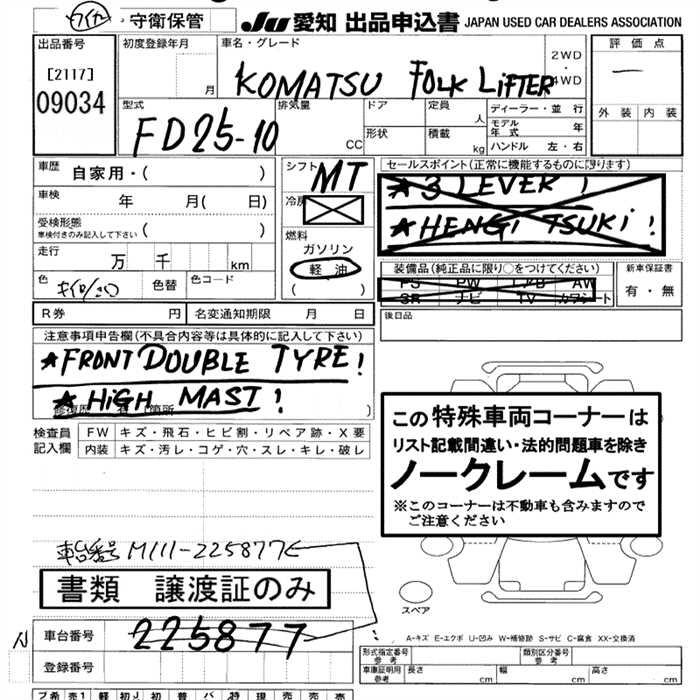 守衛保管
JU 愛知 出品申込書 JAPAN USED CAR DEALERS ASSOCIATION
出品番号
[2117]
09034
初度登録年月
月
車名・グレード
KOMATSU FOLK LiFTER
2WD
・
4WD
評価点
一
外装 内装
型式
FD25-10
排気量
CC
ドア
形状
定員
人
積載
kg
ディーラー・並行
モデル年式 年
ハンドル 左・右
車歴 自家用・( )
車検 年 月( 日)
受検形態
車検付きのみ記入して下さい ( )
走行 万 千 km
色
色替
色コード
R券 円
名変通知期限 月 日
シフト MT
冷房
燃料
ガソリン
軽油
( )
セールスポイント(正常に機能するものに限ります)
★3 LEVER!
★HENGI TSUKi!
装備品(純正品に限り○をつけてください)
PS PW エアB AW
SR ナビ TV カワシート
新車保証書
有・無
後日品
注意事項申告欄(不具合内容等は具体的に記入して下さい)
★FRONT DOUBLE TYRE!
★HiGH MAST!
検査員記入欄
FW キズ・飛石・ヒビ割・リペア跡・X要
内装 キズ・汚レ・コゲ・穴・スレ・キレ・破レ
この特殊車両コーナーは
リスト記載間違い・法的問題車を除き
ノークレームです
※このコーナーは不動車も含みますので
ご注意ください
スペア
車台番号 M111-225877
書類 譲渡証のみ
N
車台番号 225877
登録番号
A-キズ E-エクボ U-凹み W-補修跡 S-サビ C-腐食 XX-交換済
形式指定番号
参考
類別区分番号
参考
車庫証明用
参考
長さ cm
幅 cm
高さ cm